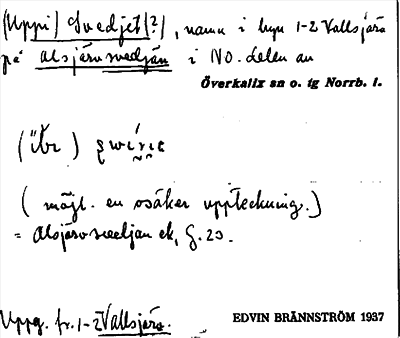 (Uppi) Svedjet (?), namn i byn 1-2 Vallsjärv
på Alsjärvsvedjan i NO. delen av
Överkalix sn o. tg Norrb. l.
(ibr )
( möjl. en osäker uppteckning.)
= Alsjärvsvedjan ek, G. 23.
Uppg. fr. 1-2 Vallsjärv.
EDVIN BRÄNNSTRÖM 1937